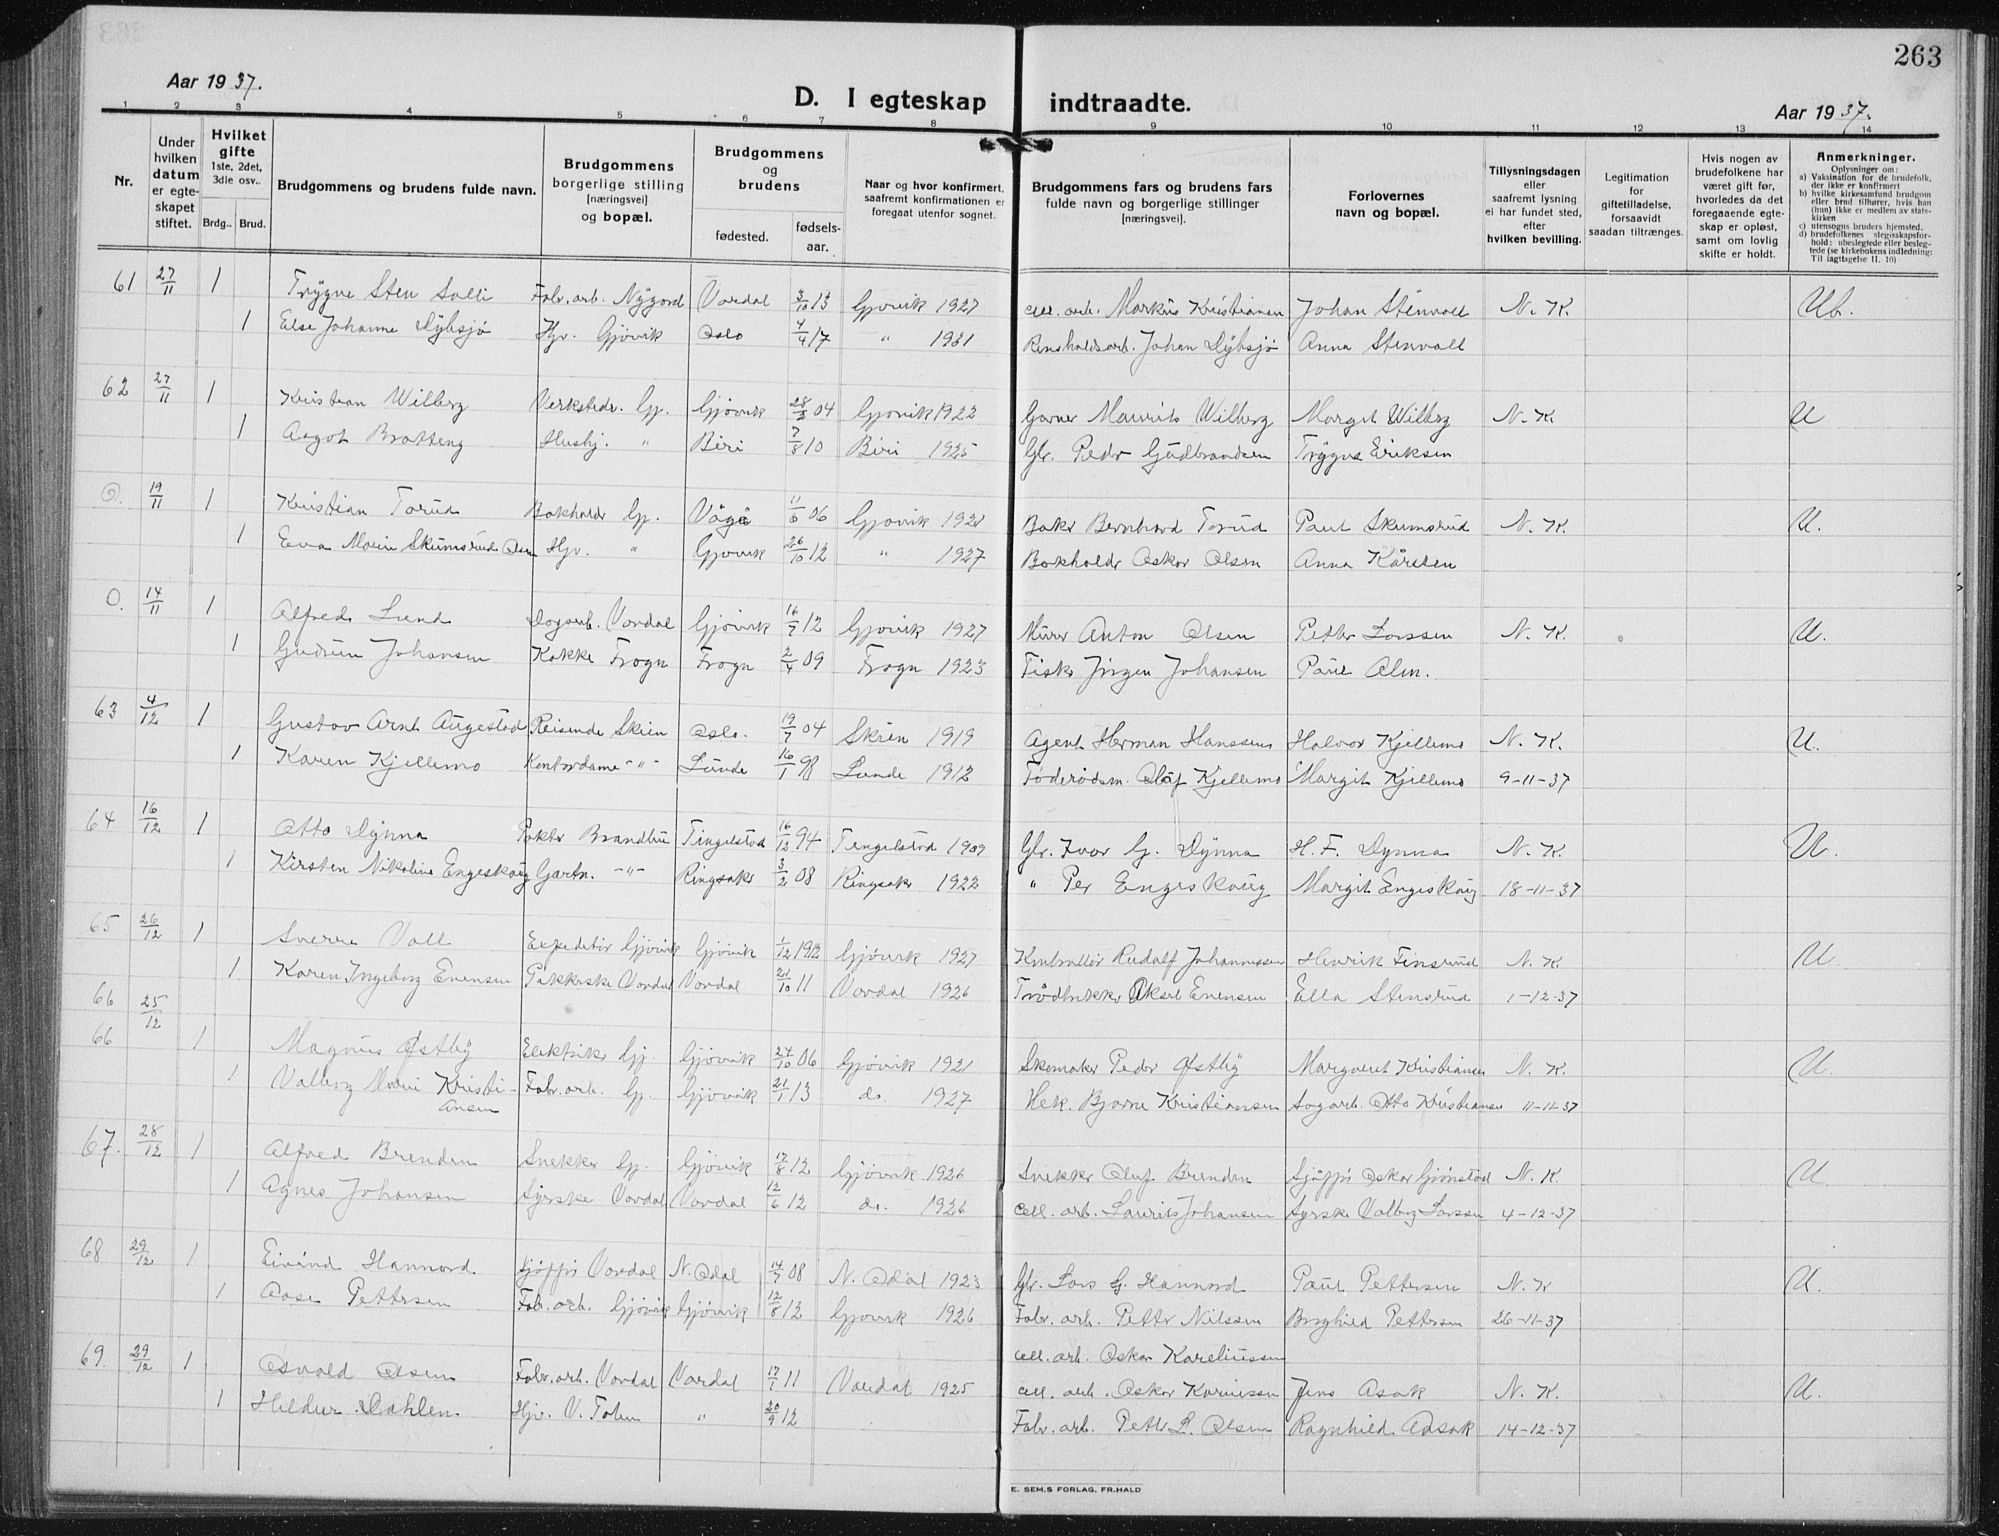 263
Aar 1937.
D. I egteskap indtraadte.
Aar 1937.
1 2 3 4 5 6 7 8 9 10 11 12 13 14
Nr.
Under hvilken datum er egteskapet stiftet.
Hvilket gifte 1ste, 2det, 3die osv..
Brdg.. Brud.
Brudgommens og brudens fulde navn.
Brudgommens borgerlige stilling [næringsvei] og bopæl.
Brudgommens og brudens
fødested. fødselsaar.
Naar og hvor konfirmert, saafremt konfirmationen er foregaat utenfor sognet.
Brudgommens fars og brudens fars fulde navn og borgerlige stillinger [næringsvei].
Forlovernes navn og bopæl.
Tillysningsdagen eller saafremt lysning ei har fundet sted, efter hvilken bevilling.
Legitimation for giftetilladelse, forsaavidt saadan tiltrænges.
Hvis nogen av brudefolkene har været gift før, hvorledes da det foregaaende egteskap er opløst, samt om lovlig skifte er holdt.
Anmerkninger.
Oplysninger om:
a) Vaksination for de brudefolk, der ikke er konfirmert
b) hvilke kirkesamfund brudgom eller brud tilhører, hvis han (hun) ikke er medlem av statskirken
c) utensogns bruders hjemsted.
d) brudefolkenes slegtskapsforhold: ubeslegtede eller beslegtede (se kirkebokens indledning: Til iagttagelse II. 10)
61 27/11 1 Trygve Sten Solli Fabr. arb. Nygard Vardal 3/10 13 Gjøvik 1927 Cell. arb. Markus Kristiansen Johan Stenvoll N. K. Ub.
1 Else Johanne Dybsjø Hjv. Gjøvik Oslo 4/4 17 " 1931 Renholdsarb. Johan Dybsjø Anna Stenvoll
62 27/11 1 Kristian Wilberg Verkstedr. Gj. Gjøvik 28/2 04 Gjøvik 1922 Garver Maurits Wilberg Margit Wilberg N. K. U
1 Aagot Bratteng Husbj. " Biri 7/8 10 Biri 1925 Gbr. Peder Gudbrandsen Trygve Eriksen
O. 19/11 1 Kristian Torud Bokholdr Gj. Vågå 11/6 06 Gjøvik 1921 Baker Bernhard Torud Paul Skumsrud N. K. U.
1 Eva Marie Skumsrud Olsen Hjv. " Gjøvik 26/10 12 " 1927 Bokholdr Oskar Olsen Anna Kårlsen
O. 14/11 1 Alfred Lund Dagarb. Vardal Gjøvik 16/7 12 Gjøvik 1927 Murer Anton Olsen Petter Larssen N. K. U.
1 Gudrun Johansen Kokke Frogn Frogn 2/4 09 Frogn 1923 Fisker Jörgen Johansen Paul Alm.
63 4/12 1 Gustav Arnt Augestad Reisende Skien Oslo. 19/7 04 Skien 1919 Agent Herman Hanssen Halvor Kjellemo N. K. U.
1 Karen Kjellemo Kontordame -"- Lunde 16/1 98 Lunde 1912 Føderådsm. Olaf Kjellemo Margit Kjellemo 9-11-37
64 16/12 1 Otto Dynna Pakter Brandbu Tingelstad 16/12 94 Tingelstad 1909 Gbr. Ivar G. Dynna H. F. Dynna N. K. U.
1 Kirsten Nikoline Engeskaug Gartn. -"- Ringsaker 3/2 08 Ringsaker 1922 " Per Engeskaug Margit Engeskaug 18-11-37
65 26/12 1 Sverre Voll Expeditör Gjövik Gjövik 1/12 1912 Gjövik 1927 Kontrollör Rudolf Johannessen Henrik Finsrud N. K. U
1 Karen Ingeborg Evensen Pakkerske Vardal Vardal 21/10 11 Vardal 1926 Trådtrekker Aksel Evensen Ella Stensrud 1-12-37
66 25/12
66 1 Magnus Østby Elektriker Gj. Gjövik 24/10 06 Gjövik 1921 Skomaker Peder Østby Margaret Kristiansen N. K. U.
1 Valborg Marie Kristiansen Fabr. arb. Gj. Gjövik 21/1 13 do. 1927 Hek. Bjarne Kristiansen Sagarb. Otto Kristiansen 11-11-37
67. 28/12 1 Alfred Brenden Snekker Gj. Gjövik 17/8 12 Gjövik 1926 Snekker Oluf Brenden Sjåffør Oskar Grönstad N. K. U
1 Agnes Johansen Syerske Vardal Vardal 12/6 12 do. 1926 Cell. arb. Laurits Johansen Syerske Valborg Larssen 4-12-37
68 29/12 1 Eivind Hannord Sjåffør Vardal N. Odal 14/7 08 N. Odal 1923 Gbr. Lars G. Hannord Paul Pettersen N. K U.
1 Aase Pettersen Fabr. arb. Gjøvik Gjövik 12/8 12 Gjøvik 1926 Fabr. arb. Petter Nilssen Borghild Pettersen 26-11-37
Cell. arb. Oskar Kareliussen
69. 29/12 1 Osvald Olsen Fabr. arb. Vardal Vardal 17/1 11 Vardal 1925 Cell. arb. Oskar Karinssen Jens Asak N. K. U.
1 Hildur Dahlen Hjv. V. Toten " 20/9 12 Fabr. arb. Petter L. Olsen Ragnhild Aasak 14-12-37
E. SEM,S FORLAG, FR.HALD